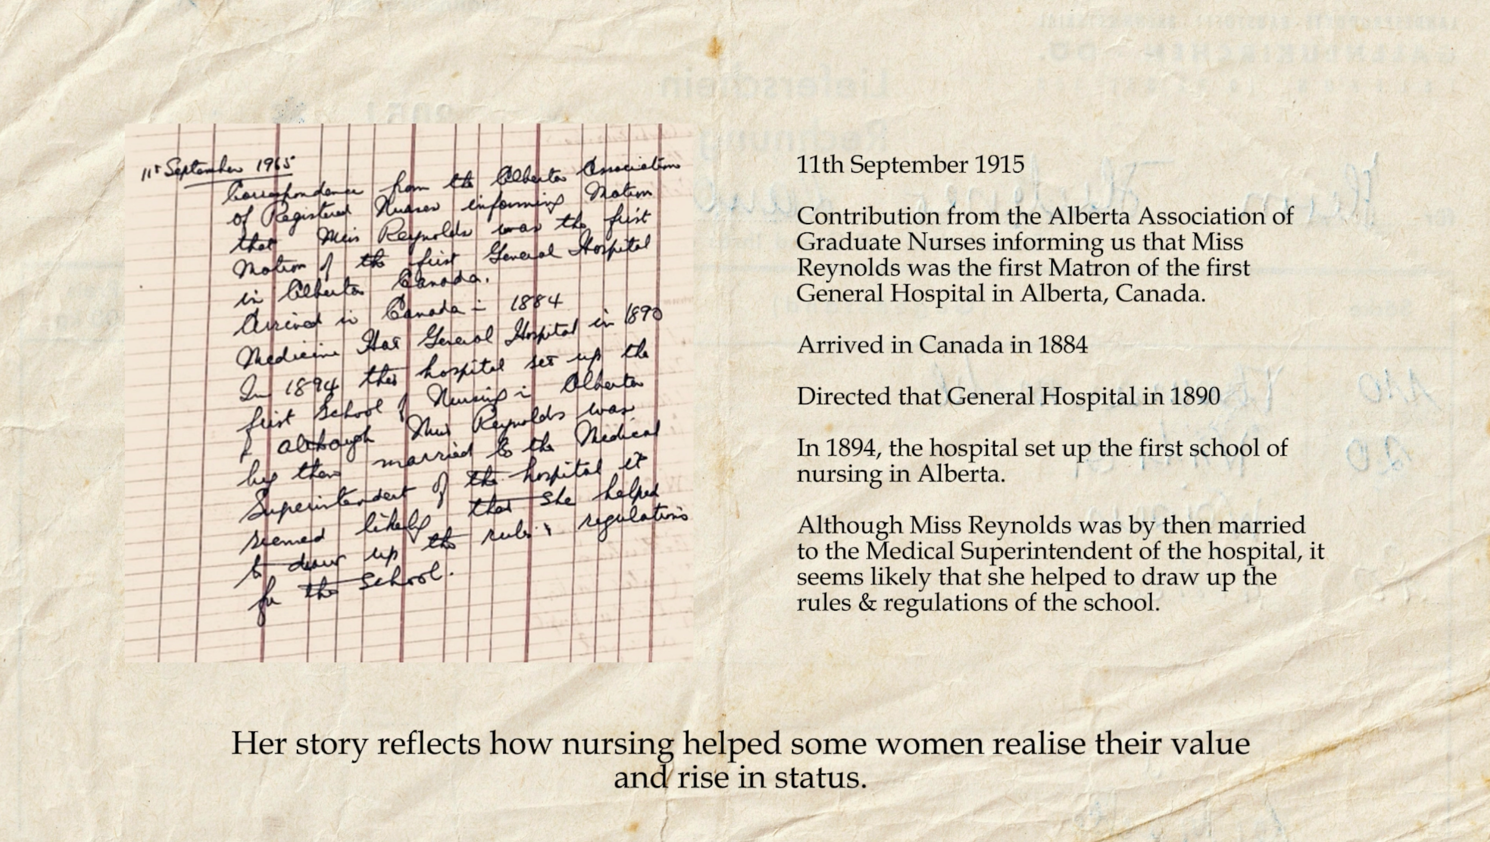 11th September 1965
Correspondence from the Alberta Association
of Registered Nurses informing Matron
that Miss Reynolds was the first
Matron of the first General Hospital
in Alberta Canada.
Arrived in Canada in 1884
Medicine Hat General Hospital in 1890
In 1894 this hospital set up the
first School of Nursing in Alberta
& although Miss Reynolds was
by then married to the Medical
Superintendent of the hospital it
seemed likely that she helped
to draw up the rules & regulations
for the School.
11th September 1915
Contribution from the Alberta Association of
Graduate Nurses informing us that Miss
Reynolds was the first Matron of the first
General Hospital in Alberta, Canada.
Arrived in Canada in 1884
Directed that General Hospital in 1890
In 1894, the hospital set up the first school of
nursing in Alberta.
Although Miss Reynolds was by then married
to the Medical Superintendent of the hospital, it
seems likely that she helped to draw up the
rules & regulations of the school.
Her story reflects how nursing helped some women realise their value
and rise in status.